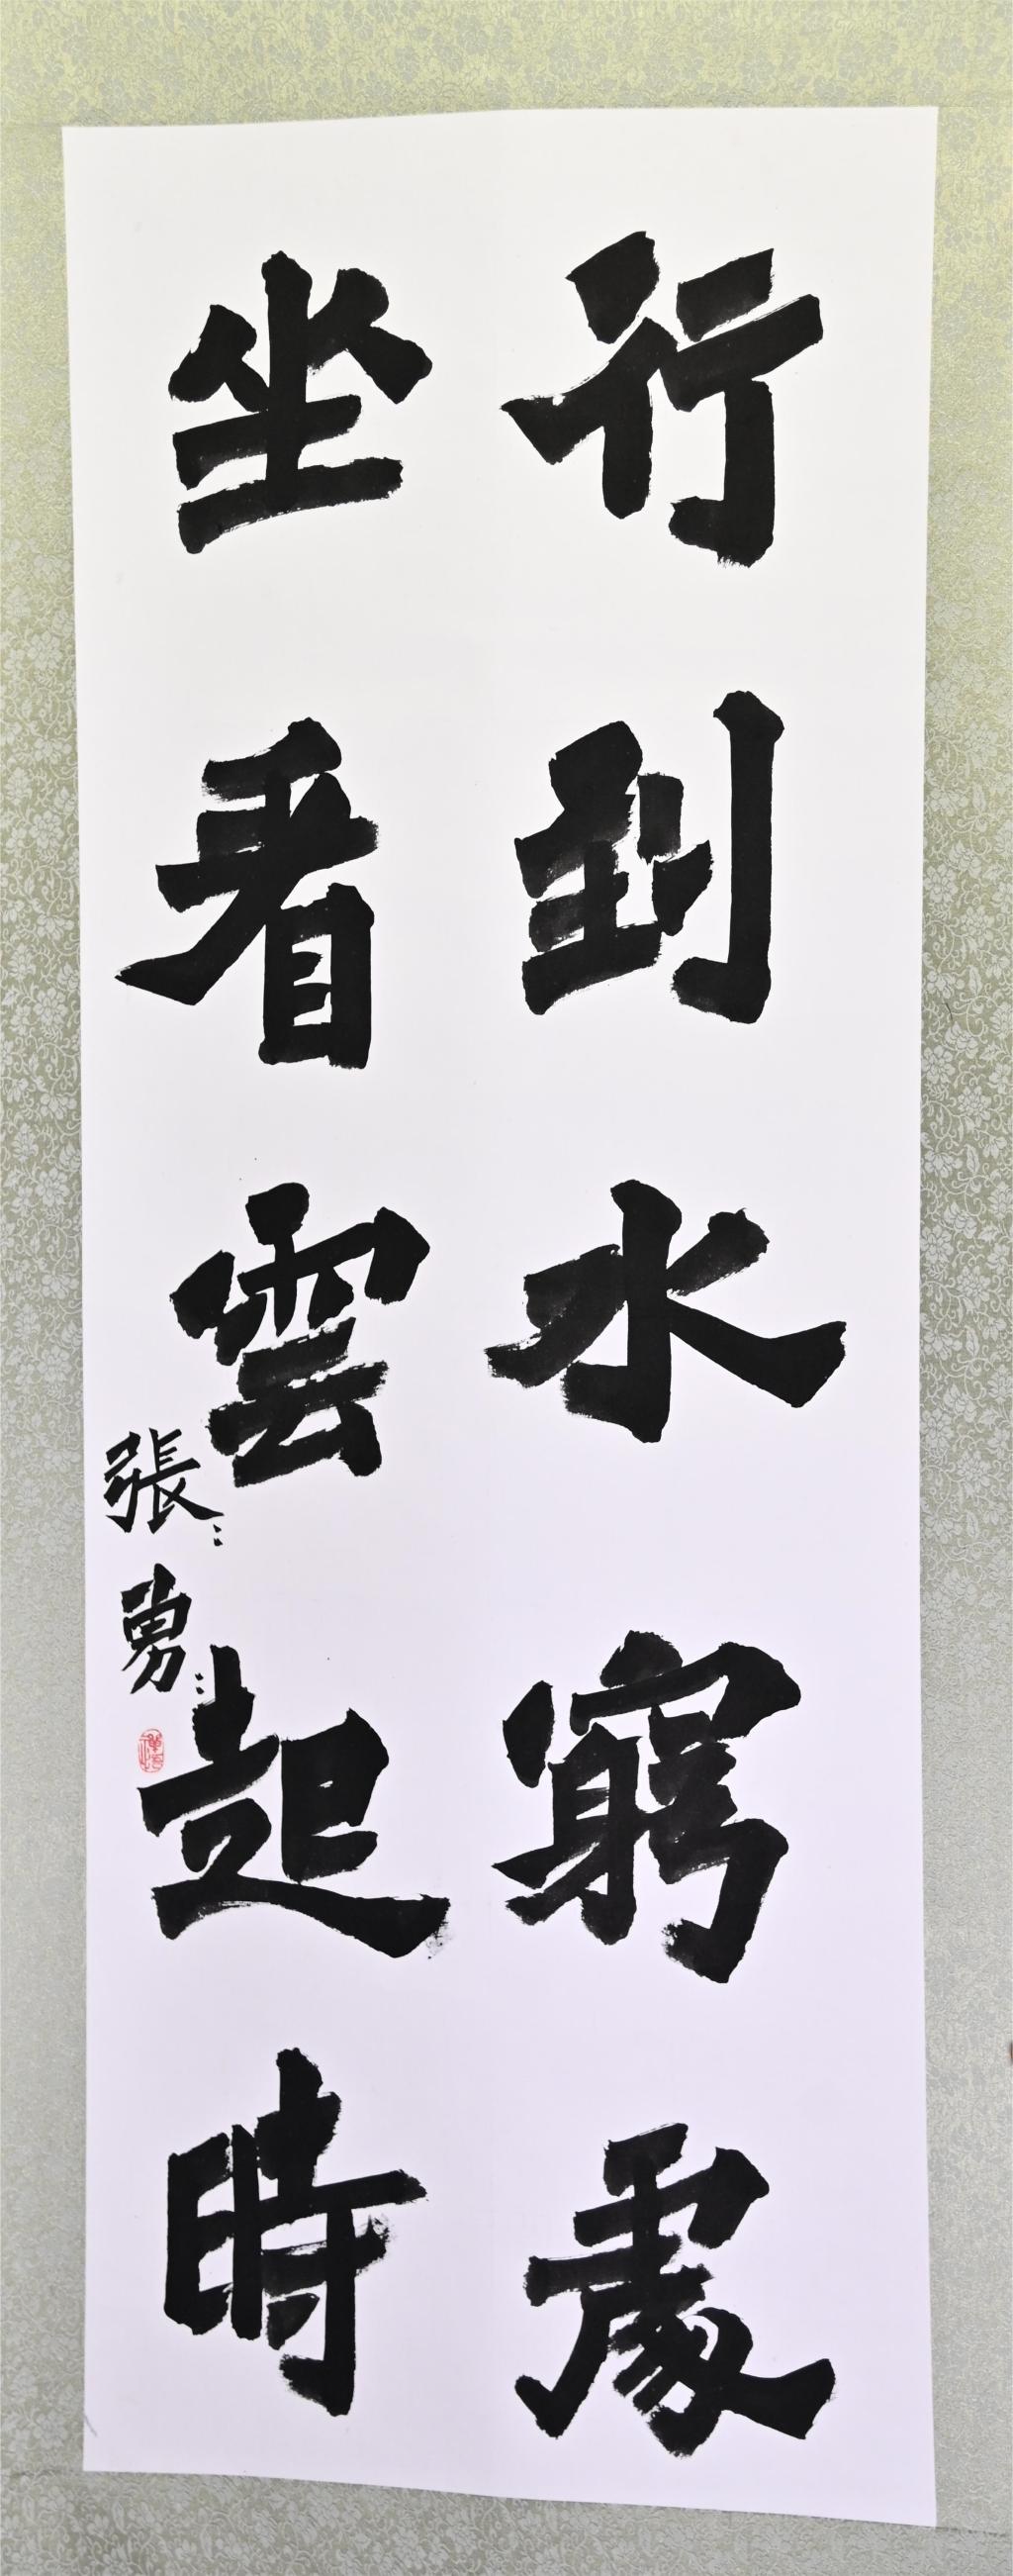 行到水窮處
坐看雲起時
張勇